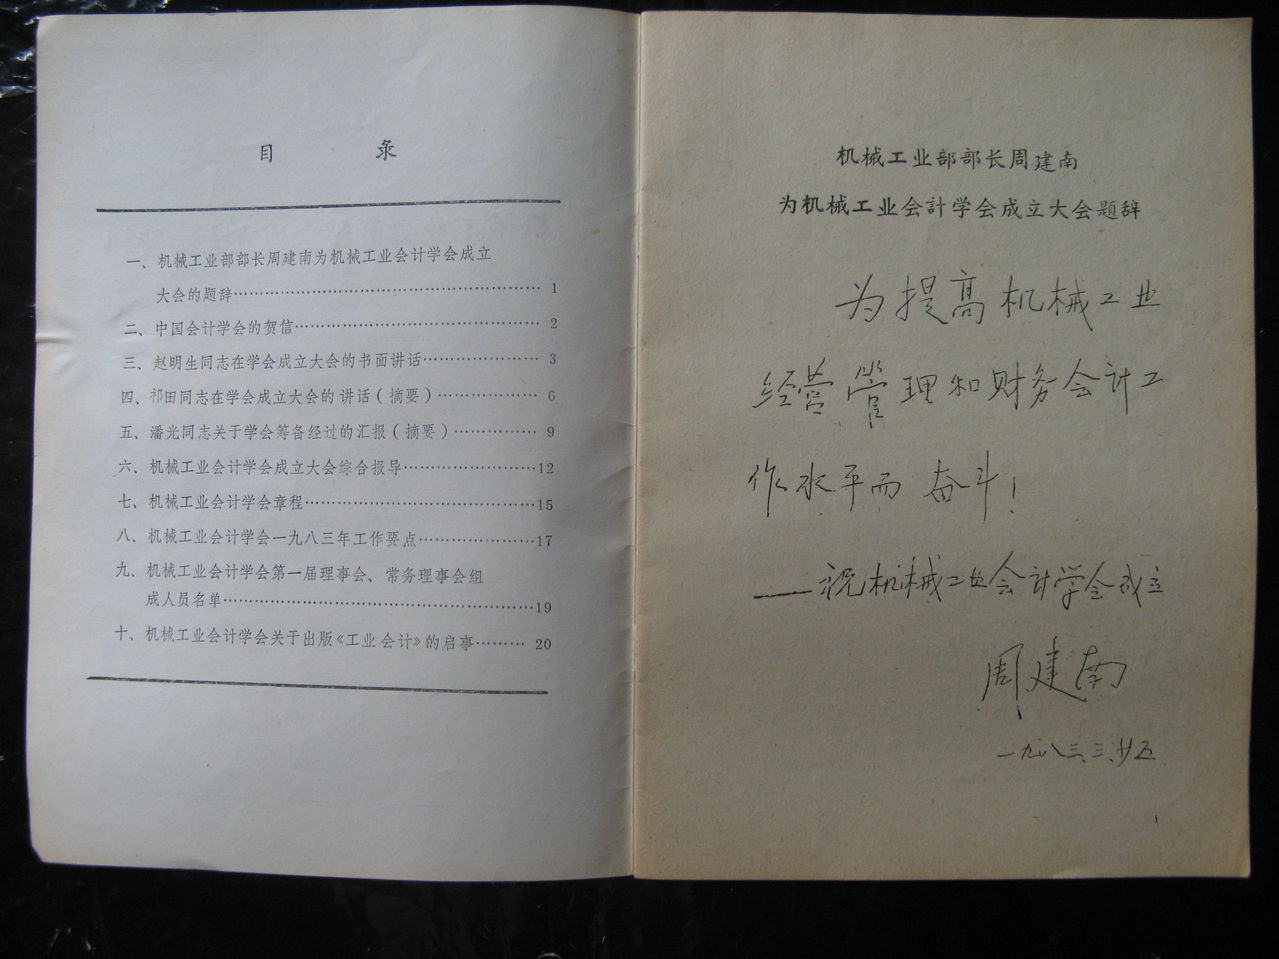 目 录
一、机械工业部部长周建南为机械工业会计学会成立
大会的题辞……………………………………………… 1
二、中国会计学会的贺信…………………………………… 2
三、赵明生同志在学会成立大会的书面讲话……………… 3
四、祁田同志在学会成立大会的讲话(摘要)…………… 6
五、潘光同志关于学会筹备经过的汇报(摘要)………… 9
六、机械工业会计学会成立大会综合报导…………………12
七、机械工业会计学会章程…………………………………15
八、机械工业会计学会一九八三年工作要点………………17
九、机械工业会计学会第一届理事会、常务理事会组
成人员名单………………………………………………19
十、机械工业会计学会关于出版《工业会计》的启事……… 20
机械工业部部长周建南
为机械工业会計学会成立大会题辞
为提高机械工业
经营管理和财务会计工
作水平而奋斗!
——祝机械工业会计学会成立
周建南
一九八三、三、廿五
1